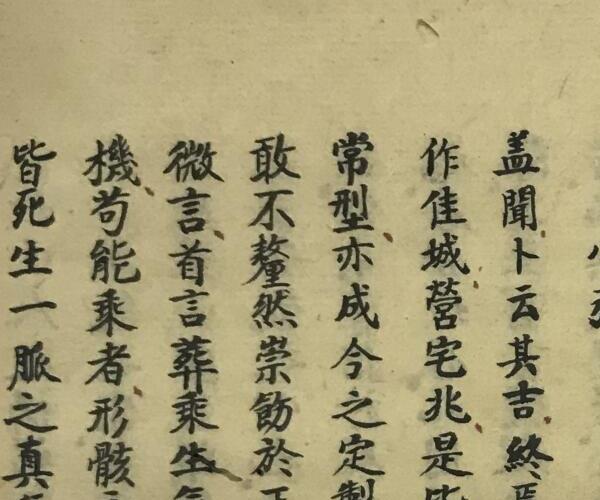 盖聞卜云其吉終焉
作佳城營宅兆是
常型亦成今之定製
敢不釐然崇飭於
微言首言葬乘生氣
機苟能乘者形骸
皆死生一脈之真